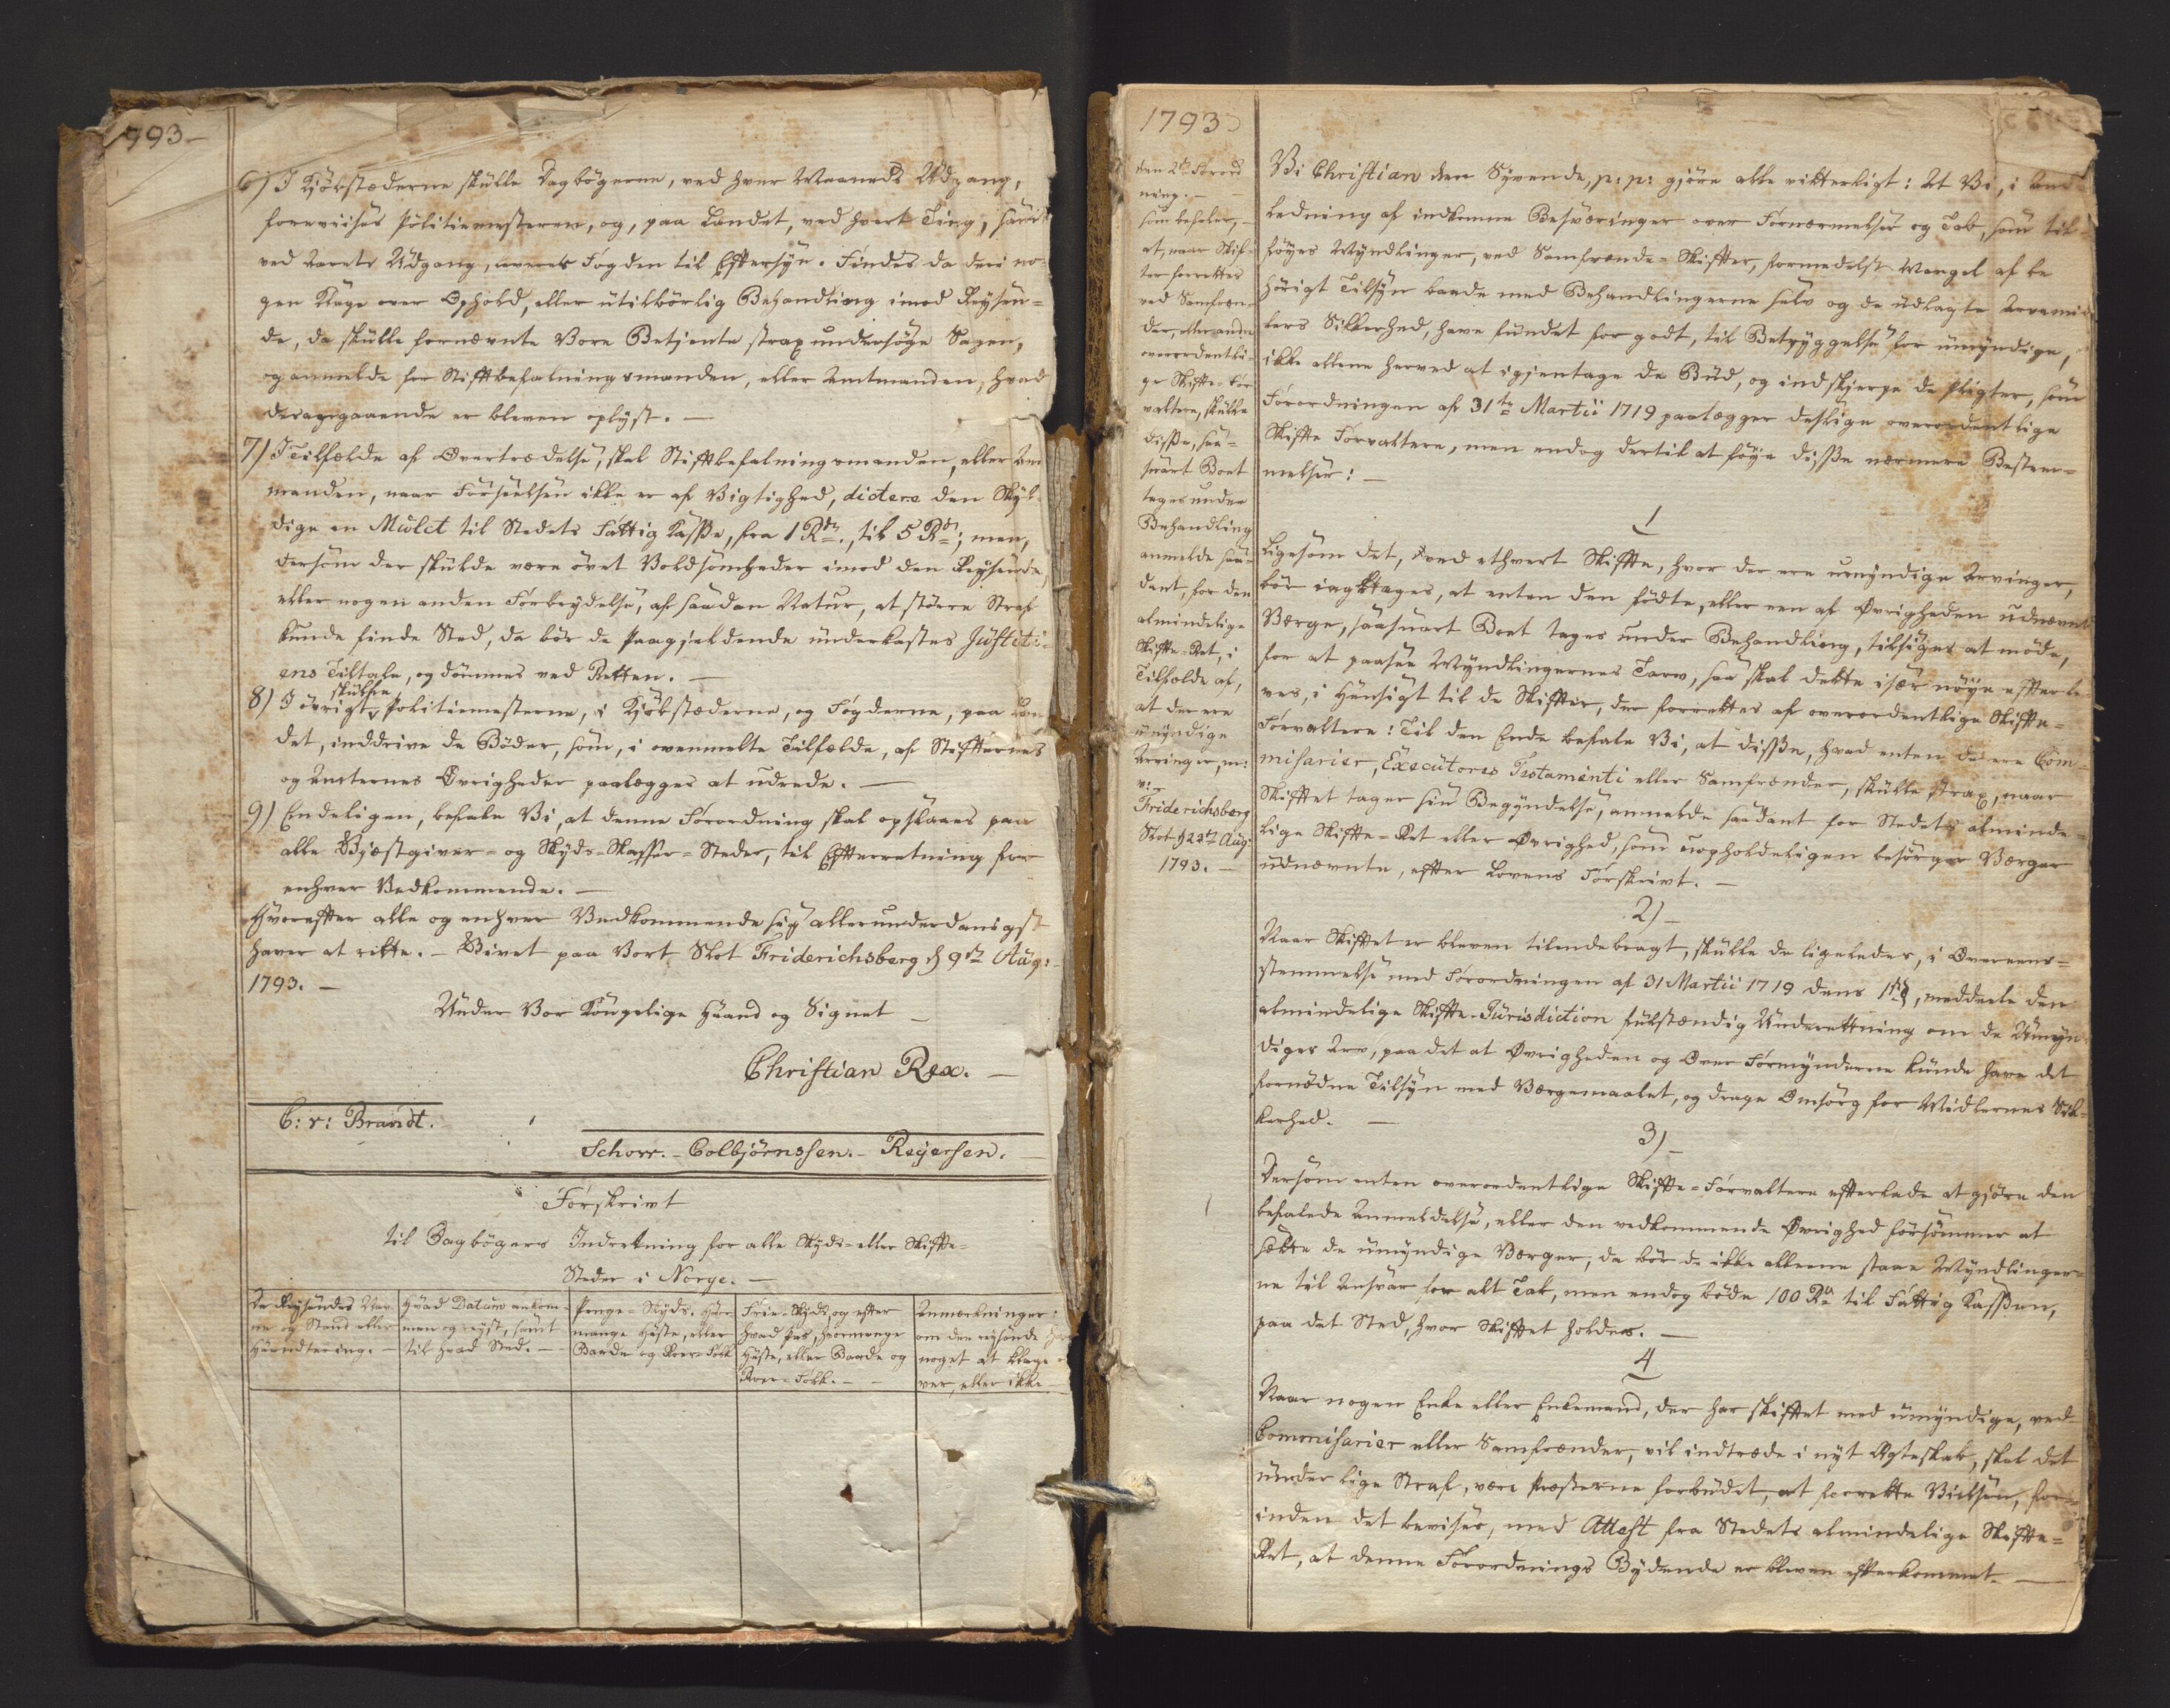 1793
6) I Kjøbstæderne skulle Dagbøgerne, ved hver Maaneds Udgang,
foreviises Politiemesteren, og, paa Landet, ved hvert Ting, samt
ved Aarets Udgang, leveres Fogden til Eftersyn. Findes da deri no-
gen Klage over Ophold, eller utilbørlig Behandling imod Reysen-
de, da skulle fornævnte Vore Betjente strax undersøge Sagen,
og anmelde for Stiftbefalningsmanden, eller Amtmanden, hvad
desangaaende er bleven oplyst. —
7) I Tilfælde af Overtrædelse, skal Stiftbefalningsmanden, eller Amt
manden, naar Forseelsen ikke er af Vigtighed, dictere den Skyl-
dige en Mulct til Stedets Fattig Kasse, fra 1 Rdr., til 5 Rdr; men,
dersom der skulde være øvet Voldsomheder imod den Reysende,
eller nogen anden Forbrydelse, af saadan Natur, at større Straf
kunde finde Sted, da bør de paagjeldende underkastes Justiti-
ens Tiltale, og dømmes ved Retten. —
8) I øvrigt skulle Politiemesterne, i Kjøbstæderne, og Fogderne, paa Lan
det, inddrive de Bøder, som, i ovenmelte Tilfælde, af Stifternes
og Amternes Øvrigheder paalægges at udrede. —
9) Endeligen, befale Vi, at denne Forordning skal opslaaes paa
alle Gjæstgiver- og Skyds-Skaffer-Steder, til Efterretning for
enhver Vedkommende. —
Hvorefter alle og enhver Vedkommende sig allerunderdanigst
haver at rette. — Givet paa Vort Slot Friderichsberg d 9de Aug:
1793. —
Under Vor Kongelige Haand og Signet —
Christian Rex. —
C: v: Brandt.
Schow. - Colbjørnssen. - Reyersen. —
Forskrivt
til Dagbøgers Indretning for alle Skyds- eller Skifte-
Steder i Norge. —
De Reysendes Nav-
ne og Stand eller
Haandtering. —
Hvad Datum ankom-
men og reyst, samt
til hvad Sted. —
Penge-Skyds. Hvor
mange Heste, eller
Baade og Roer-Folk
Frie-Skyds og efter
hvad Pas, hvormange
Heste, eller Baade og
Roer-Folk. —
Anmærkninger:
om den reysende har
noget at klage o-
ver, eller ikke.
1793
den 2de Forord
ning. —
som befaler, —
at, naar Skif-
ter forrettes
ved Samfræn-
der, eller andre
overordentli-
ge Skifte-For
valtere, skulle
disse, saa-
snart Boet
tages under
Behandling
anmelde saa-
dant, for den
almindelige
Skifte-Ret, i
Tilfælde af,
at der ere
umyndige
Arvinger, m:
v:
Friderichsberg
Slot d 23de Aug:
1793. —
Vi Christian den Syvende, p: p: gjøre alle vitterligt: At Vi, i An-
ledning af indkomne Besværinger over Fornærmelser og Tab, som til-
føyes Myndlinger, ved Samfrænde-Skifter, formedelst Mangel af be
hørigt Tilsyn baade med Behandlingerne selv og de udlagte Arvemid
lers Sikkerhed, have fundet for godt, til Betryggelse for umyndige,
ikke allene herved at igjentage de Bud, og indskjerpe de Pligter, som
Forordningen af 31te Martii 1719 paalægger deslige overordentlige
Skifte Forvaltere, men endog dertil at føye disse nærmere Bestem-
melser: —
1
Ligesom det, ved ethvert Skifte, hvor der ere umyndige Arvinger,
bør iagttages, at enten den fødte, eller een af Øvrigheden udnævnt
Værge, saasnart Boet tages under Behandling, tilsiges at møde,
for at paasee Myndlingernes Tarv, saa skal dette især nøye efterle
ves, i Hensigt til de Skifter, der forrettes af overordentlige Skifte-
Forvaltere: Til den Ende befale Vi, at disse, hvad enten de ere Com-
misarier, Executores Testamenti eller Samfrænder, skulle strax, naar
Skiftet tager sin Begyndelse, anmelde saadant for Stedets alminde-
lige Skifte-Ret eller Øvrighed, som uopholdeligen besørger Værger
udnævnte, efter Lovens Forskrivt. —
2) —
Naar Skiftet er bleven tilendebragt, skulle de ligeledes, i Overeens-
stemmelse med Forordningen af 31 Martii 1719 dens 1te §, meddeele den
almindelige Skifte-Jurisdiction fulstændig Underretning om de Umyn-
diges Arv, paa det at Øvrigheden og Over Formynderne kunde have det
fornødne Tilsyn med Værgemaalet, og drage Omsorg for Midlernes Sik-
kerhed. —
3) —
Dersom enten overordentlige Skifte-Forvaltere efterlade at gjøre den
befalede Anmeldelse, eller den vedkommende Øvrighed forsømmer at
sætte de umyndige Værger, da bør de ikke allene staae Myndlinger-
ne til Ansvar for alt Tab, men endog bøde 100 Rdr til Fattig Kassen,
paa det Sted, hvor Skiftet holdes. —
4
Naar nogen Enke eller Enkemand, der har skiftet med umyndige, ved
Commisarier eller Samfrænder, vil indtræde i nyt Ægteskab, skal det
under lige Straf, være Præsterne forbudet, at forrette Vielsen, for-
inden det bevises, med Attest fra Stedets almindelige Skifte-
Ret, at denne Forordnings Bydende er bleven efterkommet. —